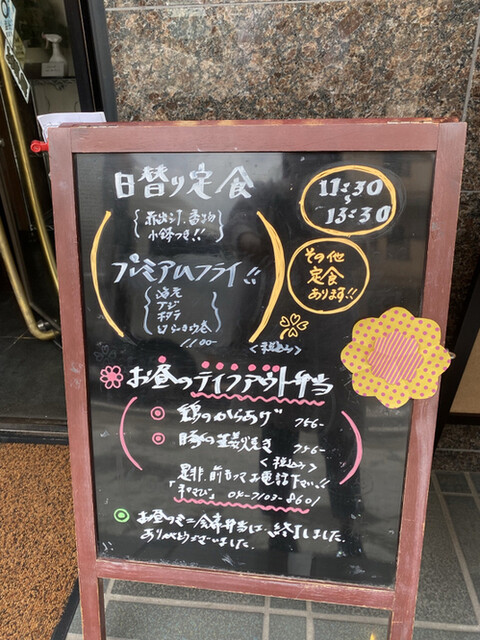 日替り定食
11:30
〜
13:30
赤出汁、香物
小鉢つき!!
プレミアムフライ!!
海老
アジ
ホタテ
1100-
<税込み>
その他
定食
あります!!
お昼のテイクアウト弁当
鶏のからあげ 756-
豚の生姜焼き 756-
<税込み>
是非、前もってお電話下さい!!
04-7103-8601
お昼のミニ会席弁当は、終了しました。
ありがとうございました。